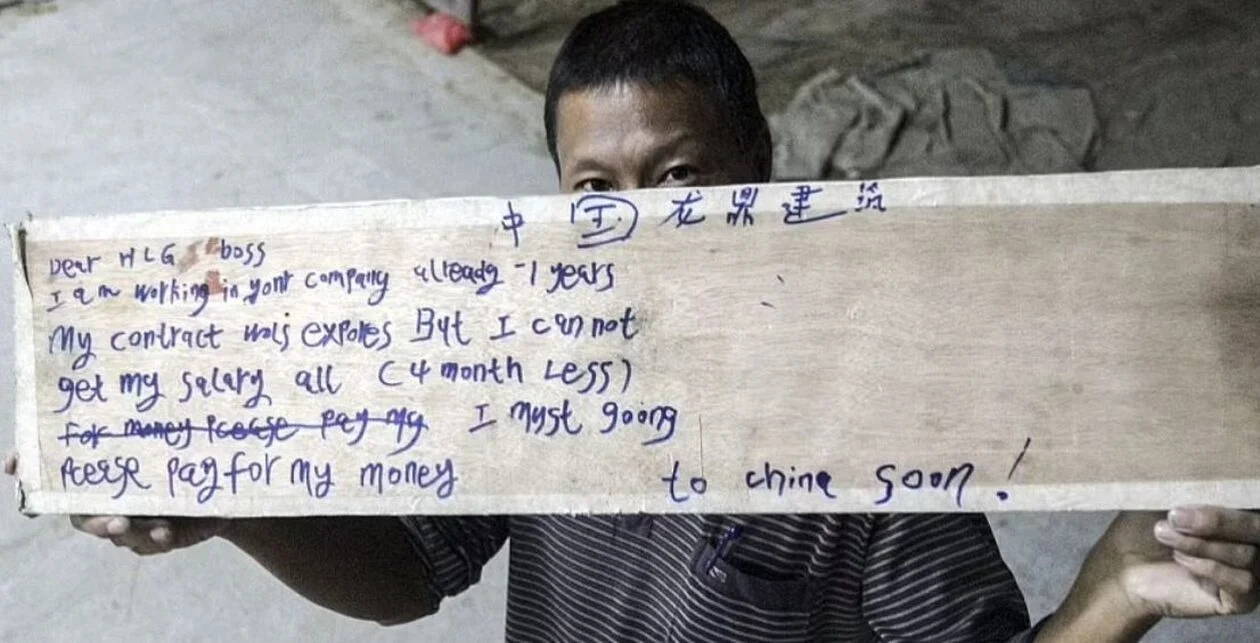 中国龙鼎建筑
Dear HLG boss
I am working in yont company allready -1 years
My contract wals expores But I can not
get my salary all (4 month Less)
For money Pcecse pay my I myst going
Pcecse pay for my money to china soon!